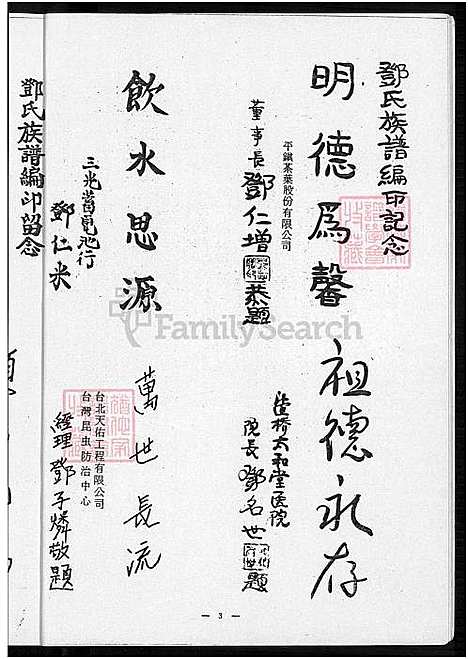 鄧氏族譜編印記念
明德為馨
平鎮茶葉股份有限公司
董事長 鄧仁增 恭題
祖德永存
板橋太和堂医院
院長 鄧名世 題
飲水思源
三光蓄電池行
鄧仁米
鄧氏族譜編印留念
萬世長流
台北天佑工程有限公司
台灣昆虫防治中心
經理 鄧子燐敬題
FamilySearch
— 3 —